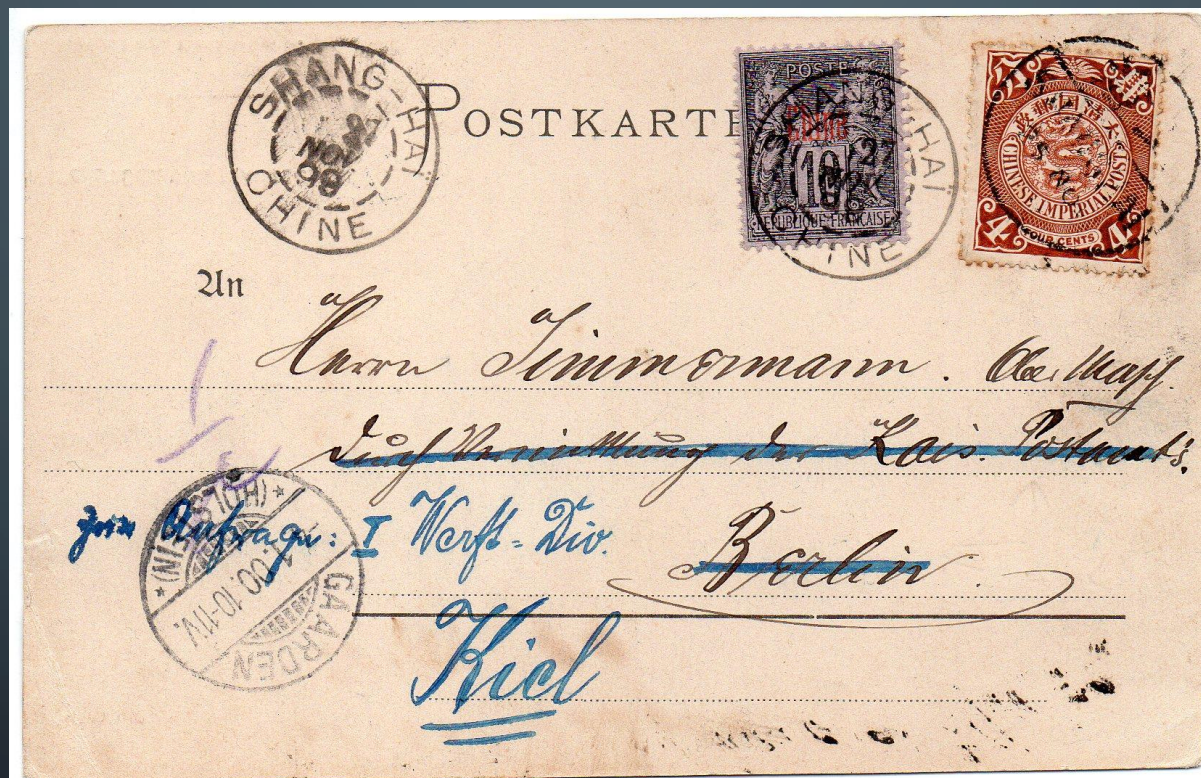 SHANG-HAÏ
27
NOV
99
CHINE
POSTKARTE
POSTE
Chine
10
REPUBLIQUE FRANÇAISE
SHANG-HAÏ
27
CHINE
大清國郵政
CHINESE IMPERIAL POST
4 FOUR CENTS 4
An
Herrn Zimmermann. Ober Masch.
durch Vermittlung des Kais. Postamt's.
Anfrage: I Werft-Div.
Berlin.
Kiel
GAARDEN
(HOLSTEIN)
1.00.10-11V.